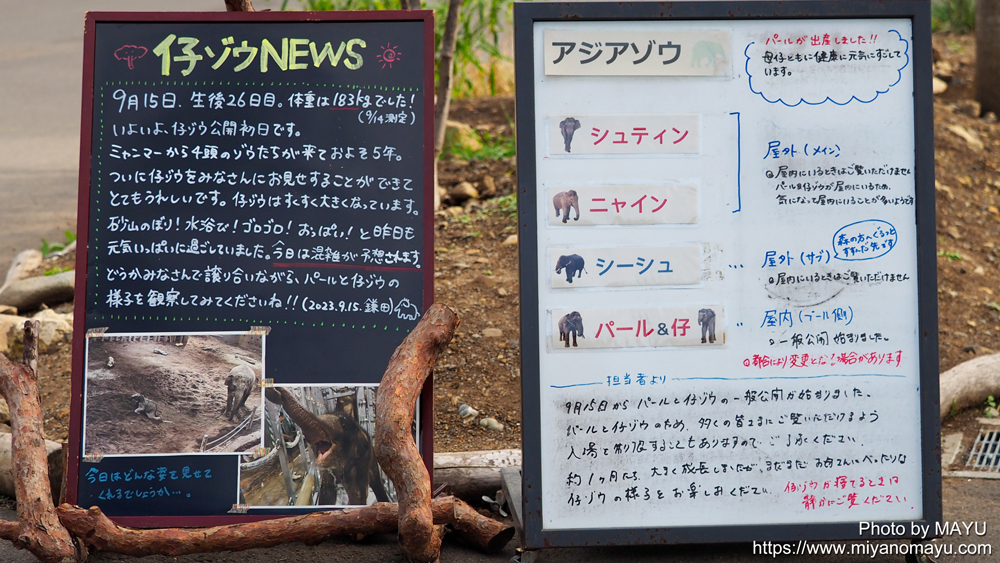 仔ゾウNEWS
9月15日、生後26日目。体重は183kgでした!
(9/14測定)
いよいよ、仔ゾウ公開初日です。
ミャンマーから4頭のゾウたちが来ておよそ5年。
ついに仔ゾウをみなさんにお見せすることができて
とてもうれしいです。仔ゾウはすくすく大きくなっています。
砂山のぼり!水浴び!ゴロゴロ!おっぱい!と昨日も
元気いっぱいに過ごしていました。今日は混雑が予想されます。
どうかみなさんで譲り合いながら、パールと仔ゾウの
様子を観察してみてくださいね!!(2023.9.15.鎌田)
今日はどんな姿を見せて
くれるでしょうか…。
アジアゾウ
パールが出産しました!!
母仔ともに健康に元気にすごして
います。
シュティン
ニャイン
屋外(メイン)
屋内にいるときはご覧いただけません
パール&仔ゾウが屋内にいるため、
気になって屋内にいることが多いようです
シーシュ
… 屋外(サブ)
森の方へぐるっと
すすんだ先です
屋内にいるときはご覧いただけません
パール&仔
屋内(プール側)
一般公開 始まりました。
都合により変更となる場合があります
担当者より
9月15日から パールと仔ゾウの一般公開が始まりました。
パールと仔ゾウのため、多くの皆さまにご覧いただけるよう
入場を制限することもありますので、ご了承ください。
約1ヶ月たち、大きく成長しましたが、まだまだ お母さんにべったりな
仔ゾウの様子をお楽しみください。
仔ゾウが寝てるときは
静かにご覧ください。
Photo by MAYU
https://www.miyanomayu.com/